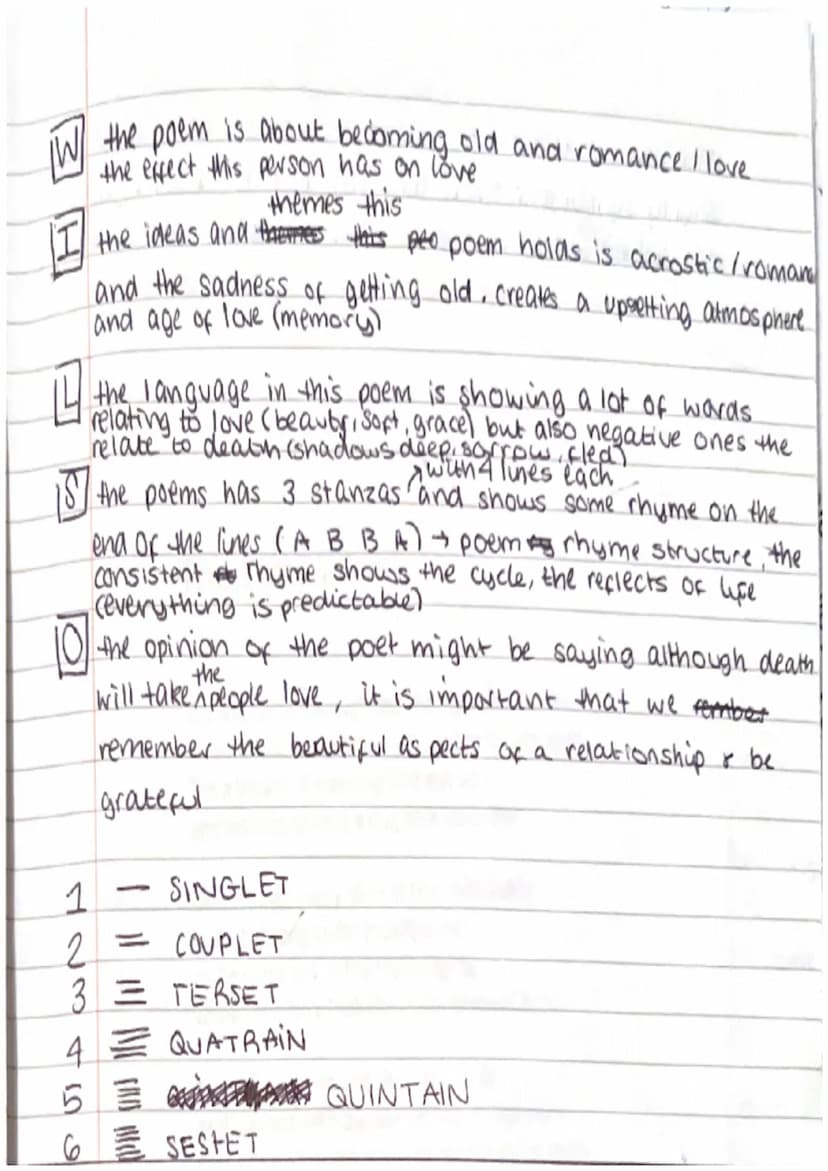 W the poem is about becoming old and romance / love
the effect this person has on love
themes this
I the ideas and themes this poo poem holds is acrostic / roman
and the sadness of getting old. creates a upsetting atmosphere
and age of love (memory)
L the language in this poem is showing a lot of words
relating to love (beauty, soft, grace) but also negative ones the
relate to death (shadows deep, sorrow, fled)
with 4 lines each
S the poems has 3 stanzas and shows some rhyme on the
end of the lines ( A B B A ) → poem rhyme structure, the
consistent rhyme shows the cycle, the reflects of life
(everything is predictable)
O the opinion of the poet might be saying although death
the
will take people love, it is important that we rember
remember the beautiful aspects of a relationship & be
grateful
1 — SINGLET
2 = COUPLET
3 TERSET
4 QUATRAIN
5 QUINTAIN
6 SESTET